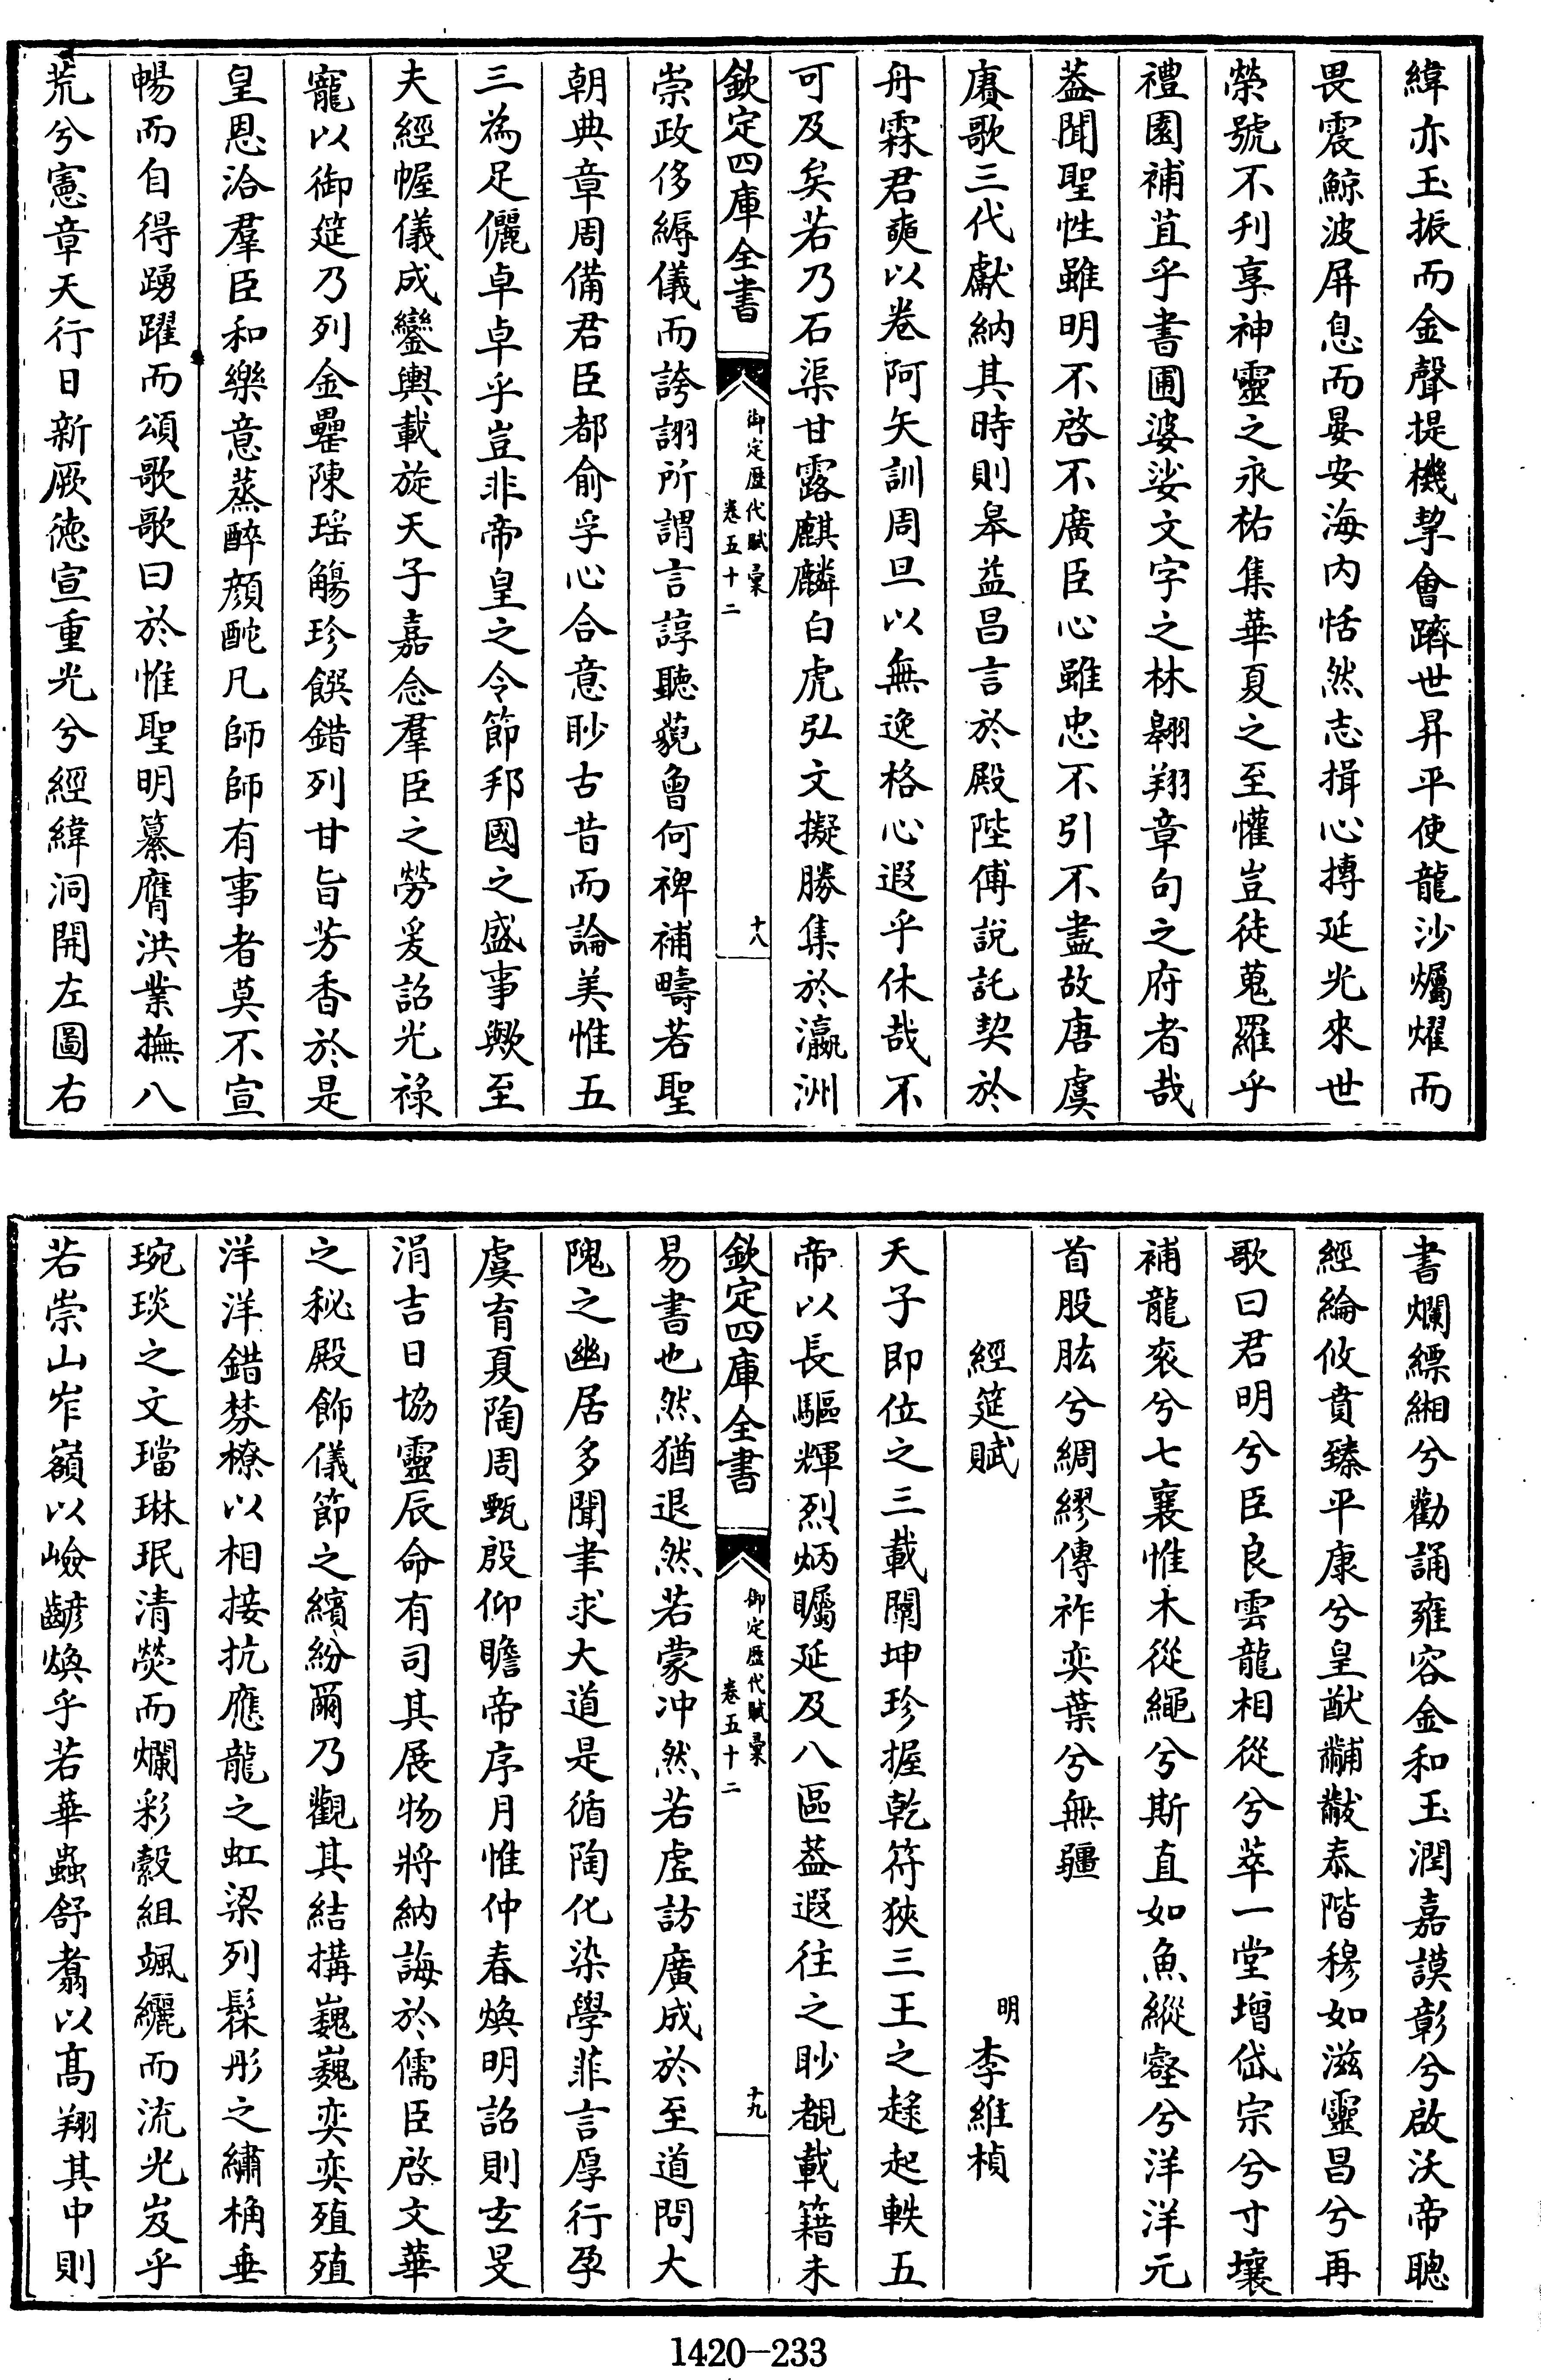 緯亦玉振而金聲提機挈會躋世昇平使龍沙爥燿而
畏震鯨波屏息而晏安海内恬然志揖心摶延光來世
榮號不刋享神靈之永祐集華夏之至懽豈徒蒐羅乎
禮園補苴乎書圃婆娑文字之林翱翔章句之府者哉
葢聞聖性雖明不啓不廣臣心雖忠不引不盡故唐虞
賡歌三代獻納其時則皋益昌言於殿陛傅說託契於
舟霖君奭以卷阿矢訓周旦以無逸格心遐乎休哉不
可及矣若乃石渠甘露麒麟白虎弘文擬勝集於瀛洲
欽定四庫全書
御定歴代賦彙
卷五十二
十八
崇政侈縟儀而誇詡所謂言諄聽藐㑹何裨補疇若聖
朝典章周備君臣都俞孚心合意眇古昔而論美惟五
三為足儷卓卓乎豈非帝皇之令節邦國之盛事歟至
夫經幄儀成鑾輿載旋天子嘉念羣臣之勞爰詔光禄
寵以御筵乃列金罍陳瑶觴珍饌錯列甘旨芳香於是
皇恩洽羣臣和樂意蒸醉顔酡凡師師有事者莫不宣
暢而自得踴躍而頌歌歌曰於惟聖明纂膺洪業撫八
荒兮憲章天行日新厥徳宣重光兮經緯洞開左圖右
書爛縹緗兮勸誦雍容金和玉潤嘉謨彰兮啟沃帝聰
經綸攸賁臻平康兮皇猷黼黻泰階穆如滋靈昌兮再
歌曰君明兮臣良雲龍相從兮萃一堂增岱宗兮寸壤
補龍衮兮七襄惟木從繩兮斯直如魚縱壑兮洋洋元
首股肱兮綢繆傳祚奕葉兮無疆
經筵賦
明
李維楨
天子即位之三載闡坤珍握乾符狹三王之趢起軼五
帝以長驅輝烈炳矚延及八區葢遐往之眇覩載籍未
欽定四庫全書
御定歴代賦彙
卷五十二
十九
易書也然猶退然若蒙冲然若虚訪廣成於至道問大
隗之幽居多聞聿求大道是循陶化染學菲言厚行孕
虞育夏陶周甄殷仰瞻帝序月惟仲春煥明詔則玄旻
涓吉日協靈辰命有司其展物將納誨於儒臣啓文華
之秘殿飾儀節之繽紛爾乃觀其結搆巍巍奕奕殖殖
洋洋錯棼橑以相接抗應龍之虹梁列髹彤之繡桷垂
琬琰之文璫琳珉清熒而爛彩縠組颯纚而流光岌乎
若崇山岞嶺以嶮巇煥乎若華蟲舒翥以髙翔其中則
1420—233